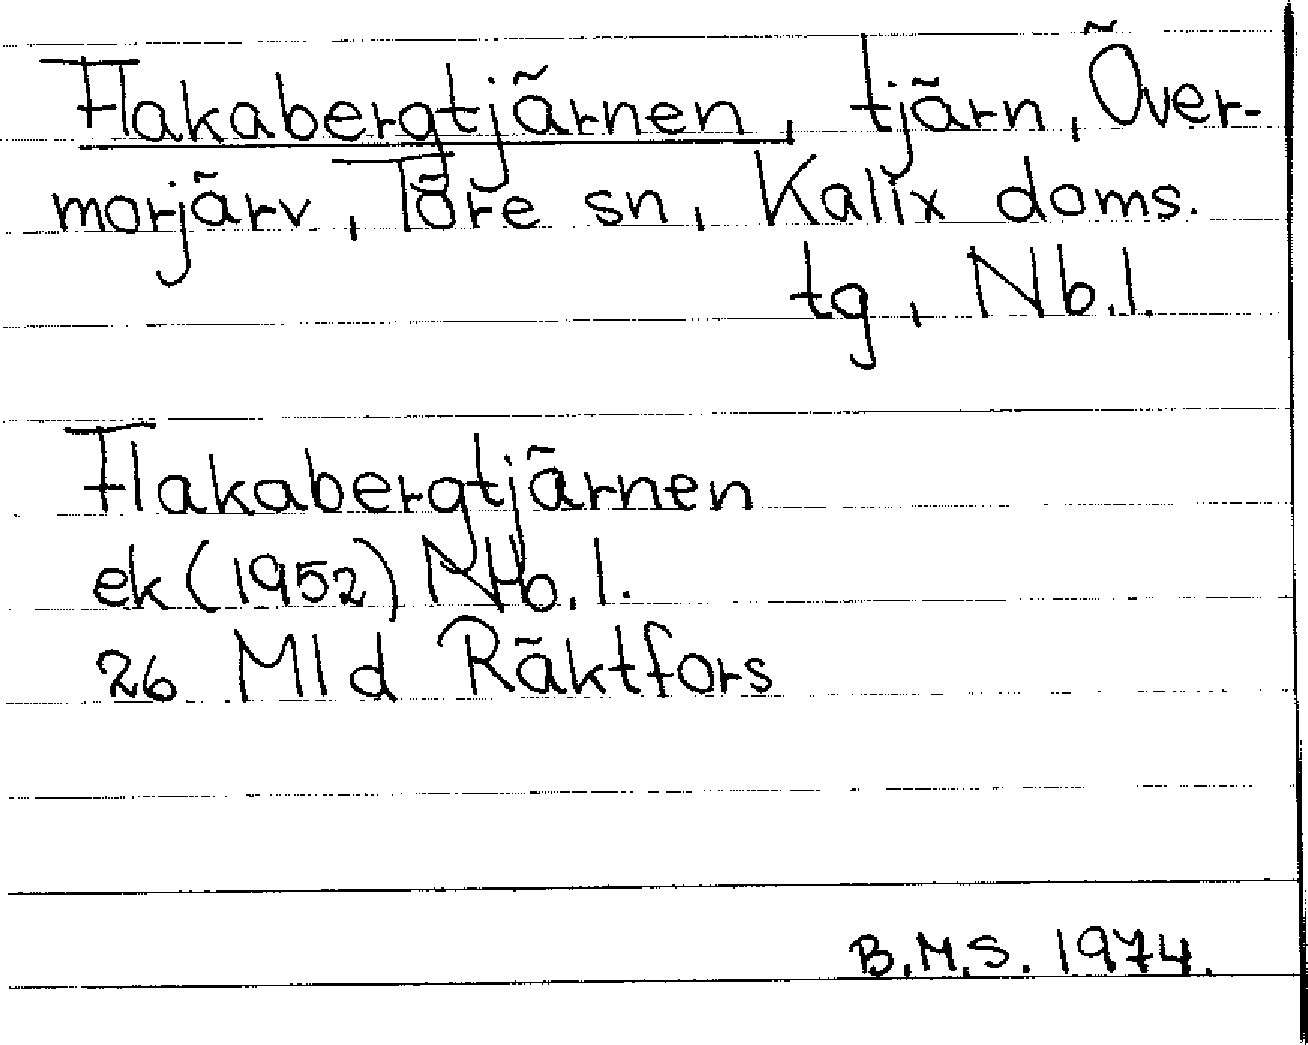 Flakabergtjärnen, tjärn, Över-
morjärv, Töre sn, Kalix doms.
tg, Nb.l.
Flakabergtjärnen
ek (1952) Nb.l.
26 Mld Räktfors
B.M.S. 1974.